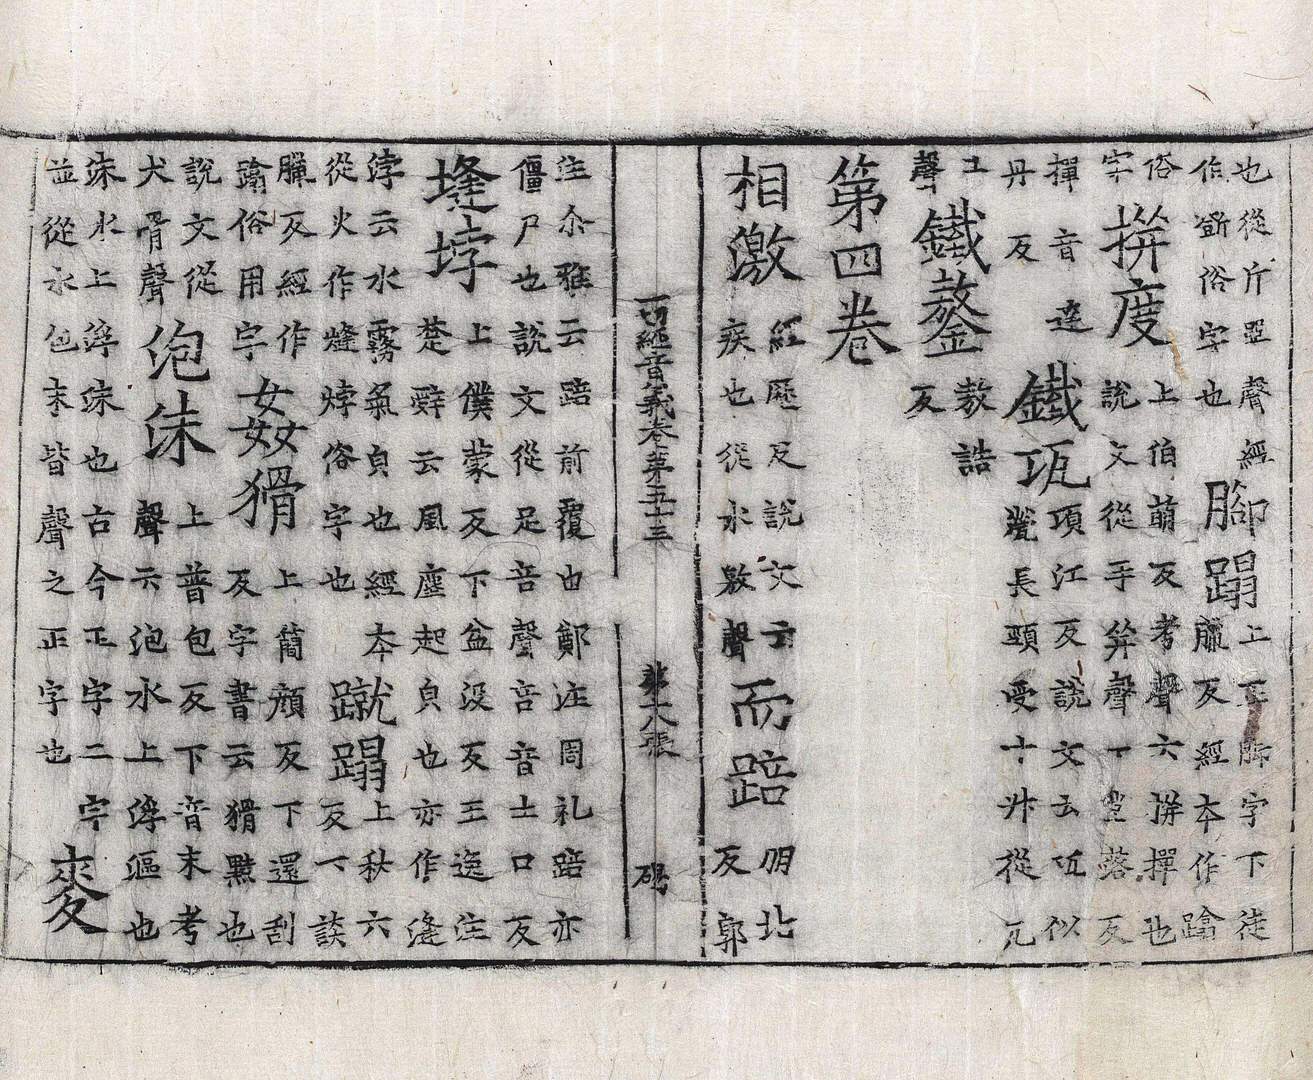 也從斤㽈聲經
作斲俗字也
腳蹋
上正脚字下徒
臘反經本作蹹
俗
字
拼度
上伯萌反考聲云拼撣也
說文從手并聲下堂落反
撣音達
丹反
鐵瓨
項江反說文云瓨似
甖長頸受十升從瓦
工
聲
鐵鏊
敖誥
反
第四卷
相激
經歷反說文云
疾也從水敫聲
而踣
朋北
反郭
注尒雅云踣前覆也鄭注周礼踣亦
僵尸也說文從足咅聲咅音土口反
㙙㘀
上僕蒙反下盆沒反王逸注
楚辤云風塵起皃也亦作漨
浡云水霧氣皃也經本
從火作熢㶿俗字也
蹴蹋
上秋六
反下談
臘反經作
蹹俗用字
姦猾
上簡顔反下還刮
反字書云猾黠也
說文從
犬骨聲
泡沫
上普包反下音末考
聲云泡水上浮漚也
沫水上浮沫也古今正字二字
並從水包末皆聲之正字也
麥
一切經音義卷第五十三
第十八張
碣